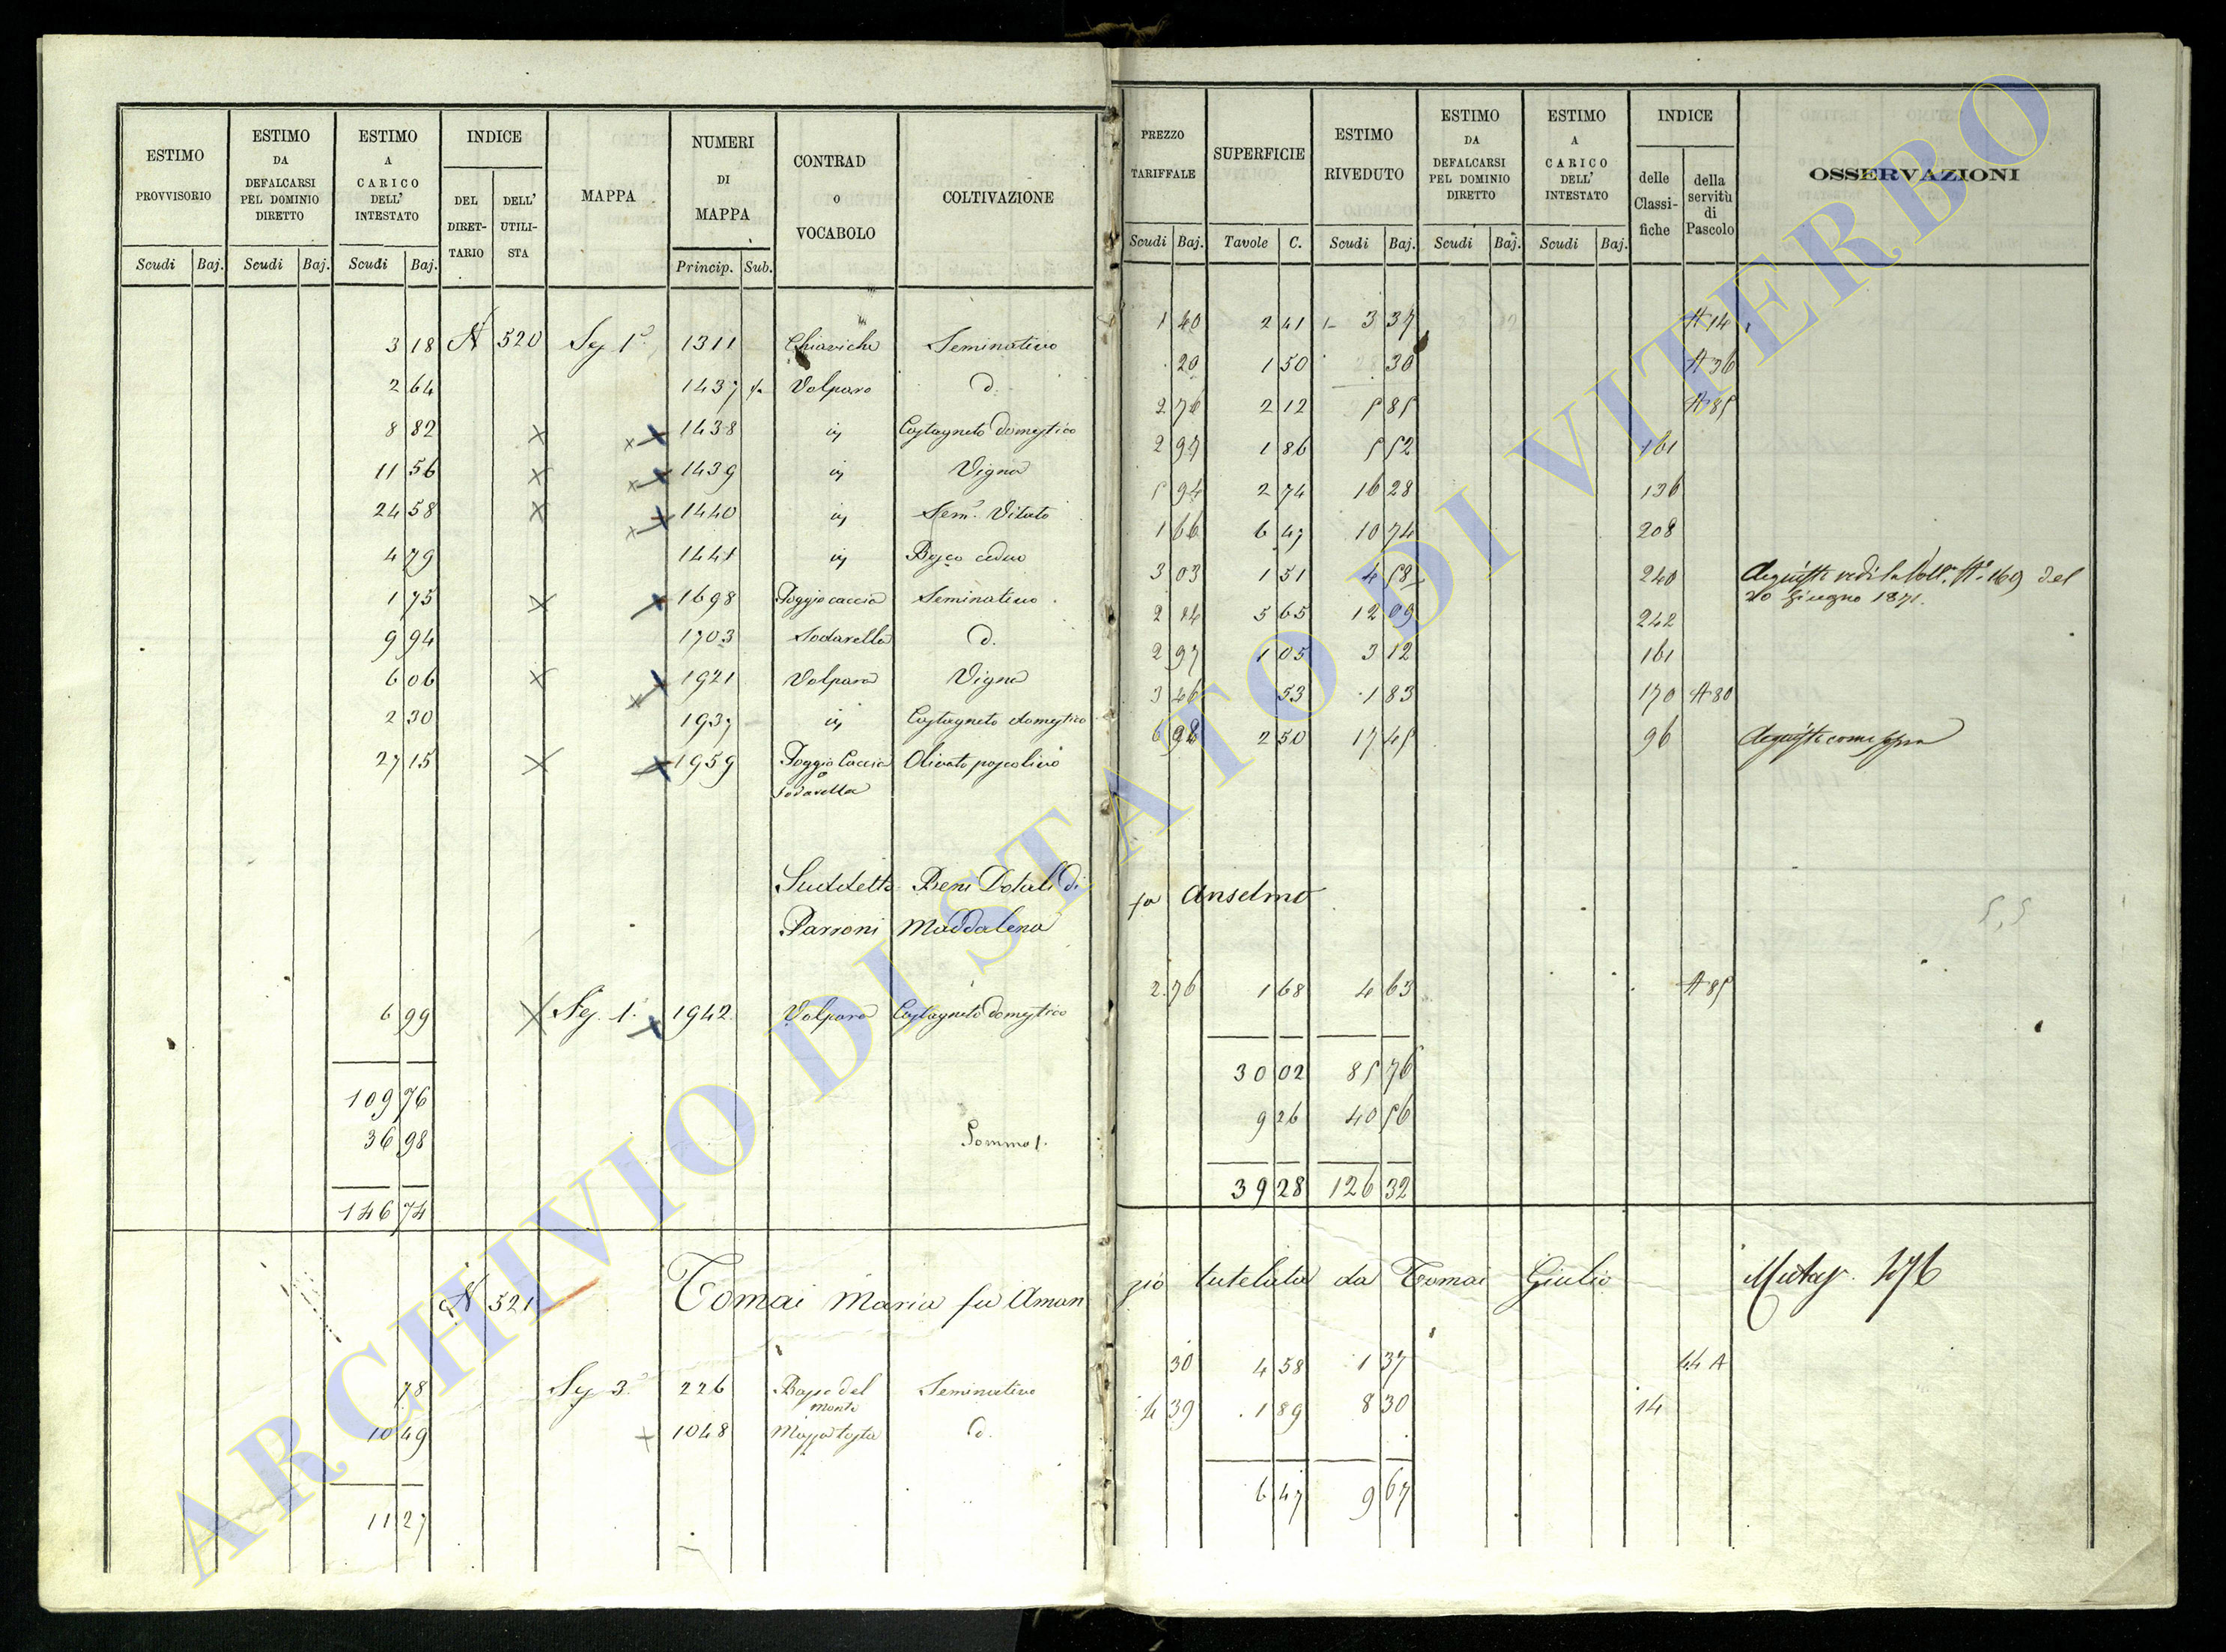 ESTIMO PROVVISORIO
ESTIMO DA DEFALCARSI PEL DOMINIO DIRETTO
ESTIMO A CARICO DELL' INTESTATO
INDICE
DEL DIRETTARIO
DELL' UTILISTA
MAPPA
NUMERI DI MAPPA
CONTRAD O VOCABOLO
COLTIVAZIONE
PREZZO TARIFFALE
SUPERFICIE
ESTIMO RIVEDUTO
ESTIMO DA DEFALCARSI PEL DOMINIO DIRETTO
ESTIMO A CARICO DELL' INTESTATO
INDICE
delle Classifiche
della servitù di Pascolo
OSSERVAZIONI
Scudi Baj. Scudi Baj. Scudi Baj. Princip. Sub.
Scudi Baj. Tavole C. Scudi Baj. Scudi Baj. Scudi Baj.
3 18 N 520 Sez 1ª 1311 Chiaviche Seminativo 1 40 2 41 3 37 A 14
2 64 1437 Volpara d. 20 1 50 30 A 36
8 82 1438 Castagneto domestico 2 76 2 12 5 85 A 85
11 56 1439 Vigna 2 97 1 86 5 52 161
24 58 1440 Sem. Vitato 5 94 2 74 16 28 136
4 79 1441 Bosco ceduo 1 66 6 47 10 74 208
1 75 1698 Poggio caccia Seminativo 3 03 1 51 4 58 240 del
20 Giugno 1871.
9 94 1703 Sodarella d. 2 14 5 65 12 09 242
6 06 1921 Volpara Vigna 2 97 1 05 3 12 161
2 30 1937 Castagneto domestico 3 46 53 1 83 170 A 80
27 15 1959 Poggio Caccia o Sodarella Olivato pascolivo 6 98 2 50 17 45 96
Suddetto Beni Dotali di
Parroni Maddalena fu Anselmo
6 99 Sez. 1ª 1942 Volpara Castagneto domestico 2 76 1 68 4 63 A 85
109 76 30 02 85 76
36 98 Somma 9 26 40 56
146 74 39 28 126 32
N 521 Tomai Maria fu Aman
zio tutelata da Tomai Giulio 276
78 Sez 3ª 226 Basse del Monte Seminativo 30 4 58 1 37 44 A
10 49 1048 Mazzatosta d. 4 39 1 89 8 30 14
11 27 6 47 9 67
ARCHIVIO DI STATO DI VITERBO